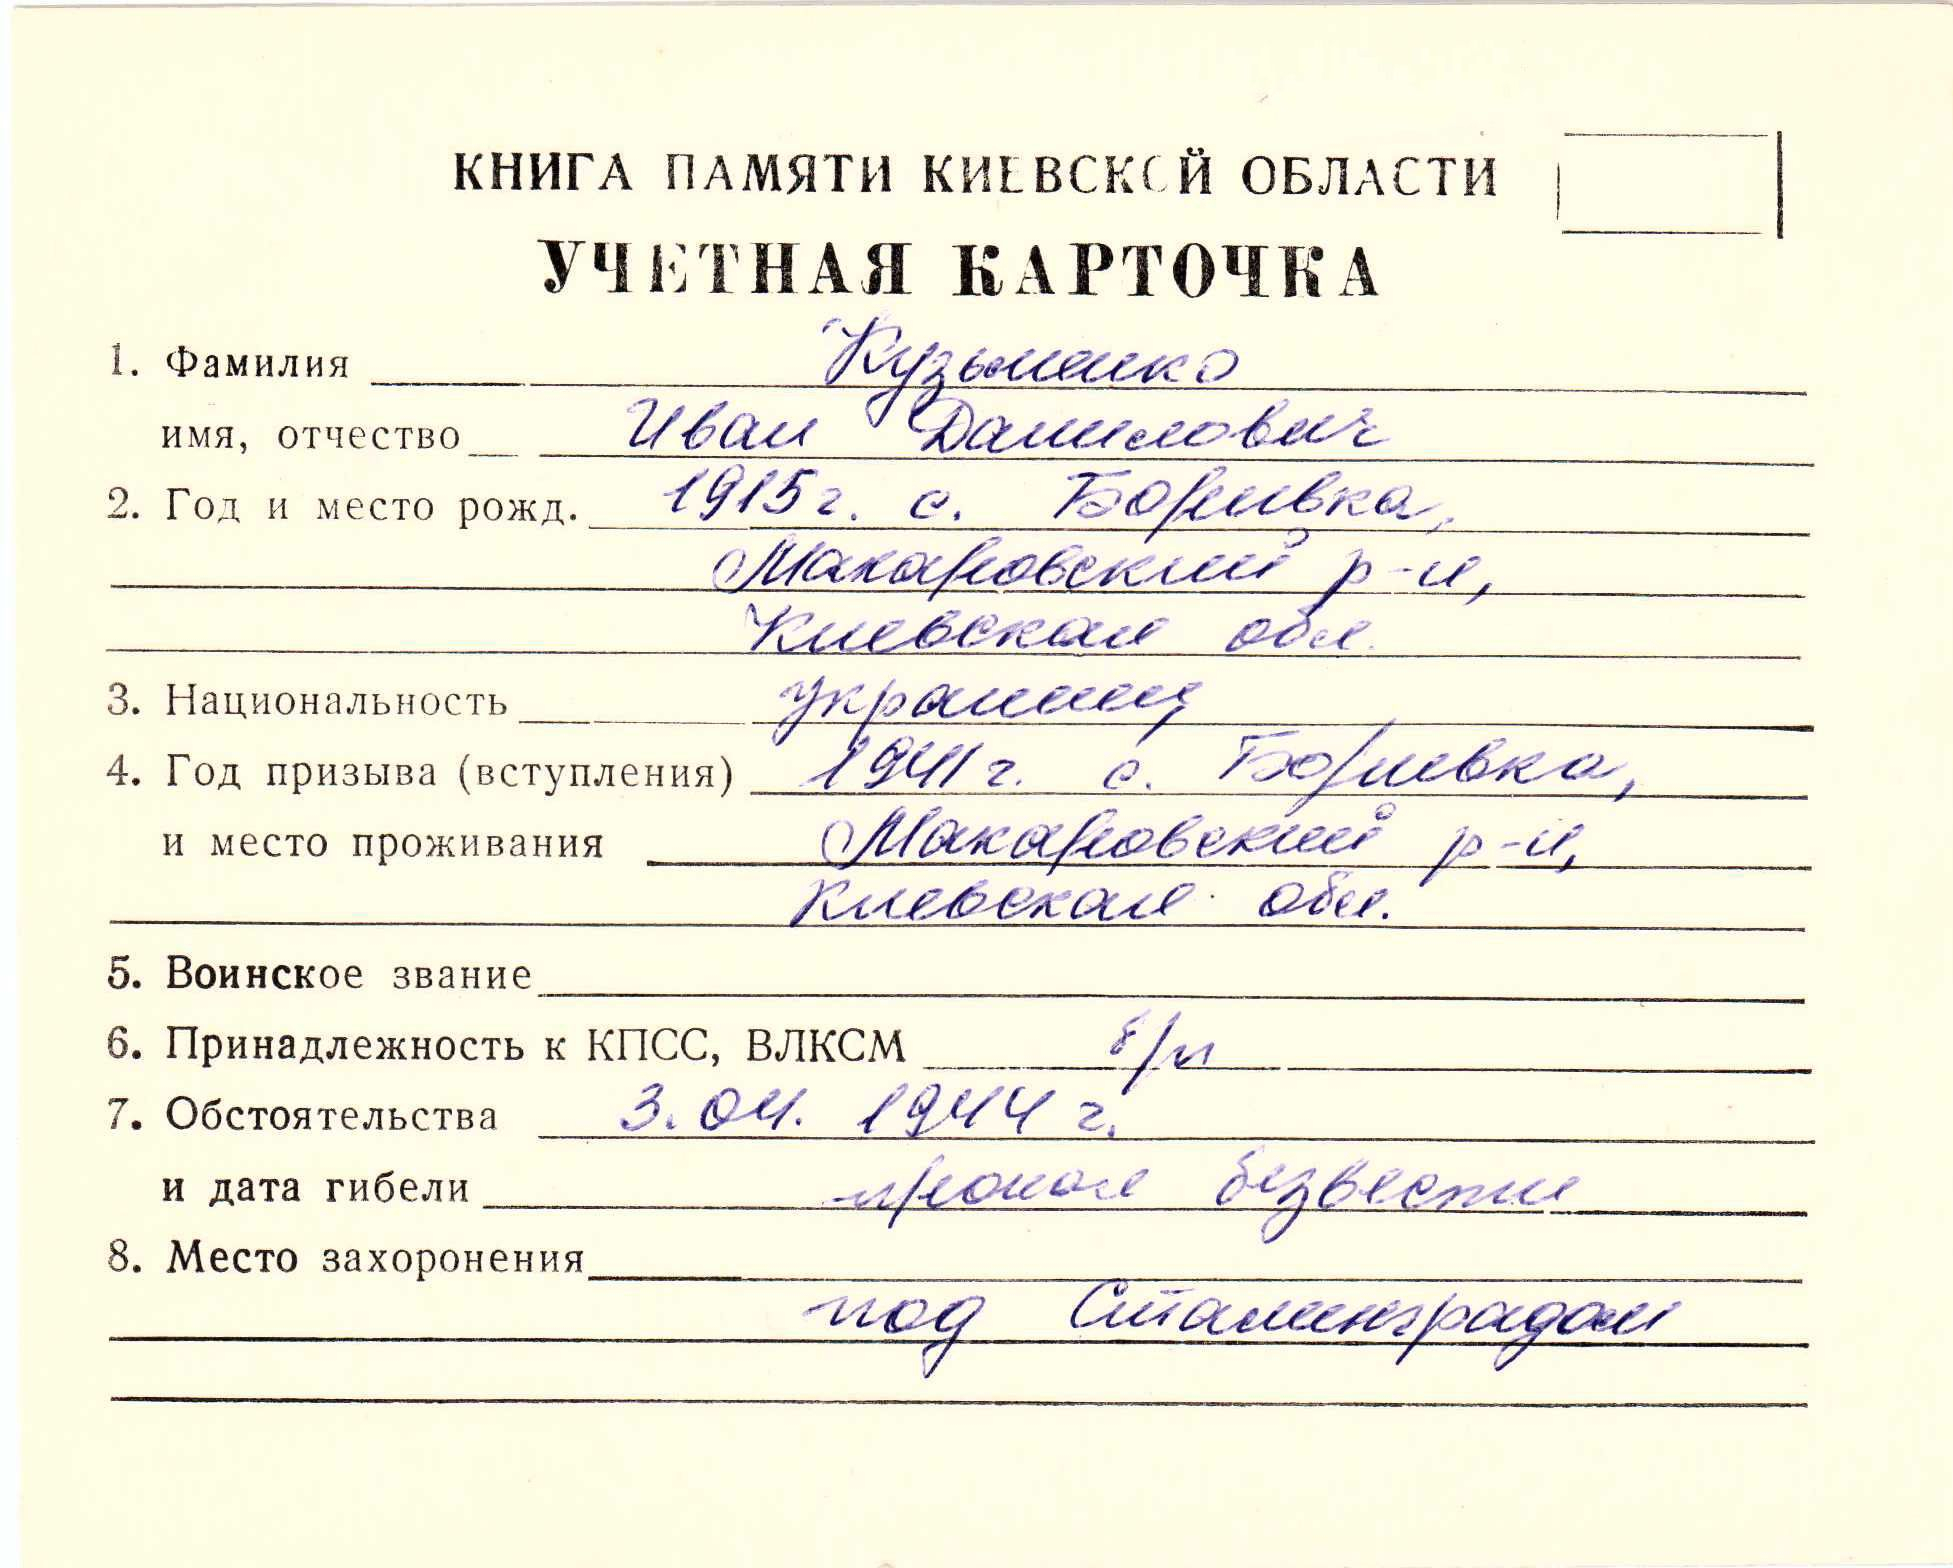 КНИГА ПАМЯТИ КИЕВСКОЙ ОБЛАСТИ
УЧЕТНАЯ КАРТОЧКА
1. Фамилия Кузьменко
имя, отчество Иван Данилович
2. Год и место рожд. 1915 г. с. Боривка,
Макаровский р-н,
Киевская обл.
3. Национальность украинец
4. Год призыва (вступления) 1941 г. с. Боривка,
и место проживания Макаровский р-н,
Киевская обл.
5. Воинское звание
6. Принадлежность к КПСС, ВЛКСМ б/п
7. Обстоятельства 3.04. 1944 г.
и дата гибели пропал безвести
8. Место захоронения
под Сталинградом